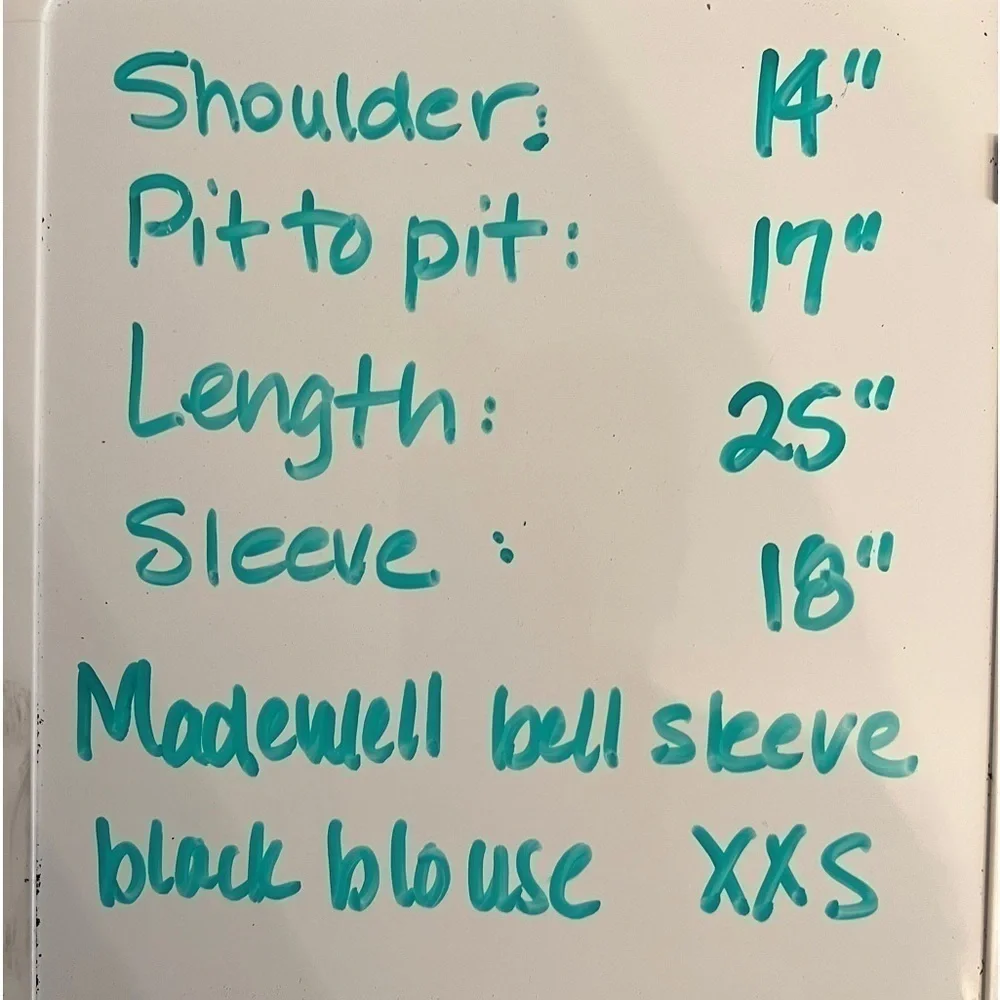 Shoulder: 14"
Pit to pit: 17"
Length: 25"
Sleeve: 18"
Madewell bell sleeve
black blouse XXS